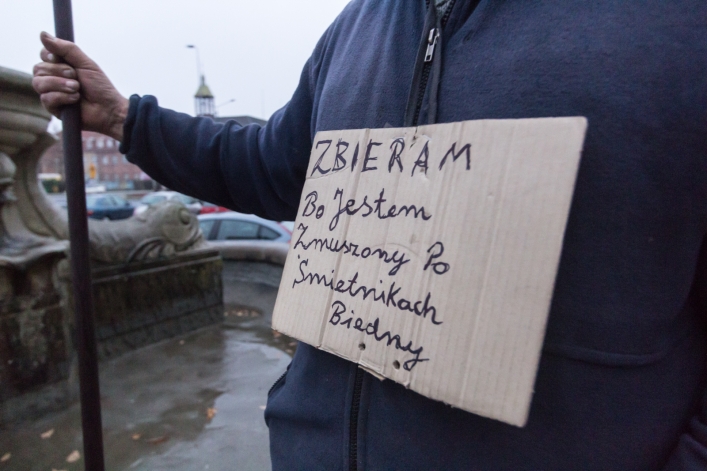 ZBIERAM
Bo Jestem
Zmuszony Po
Śmietnikach
Biedny